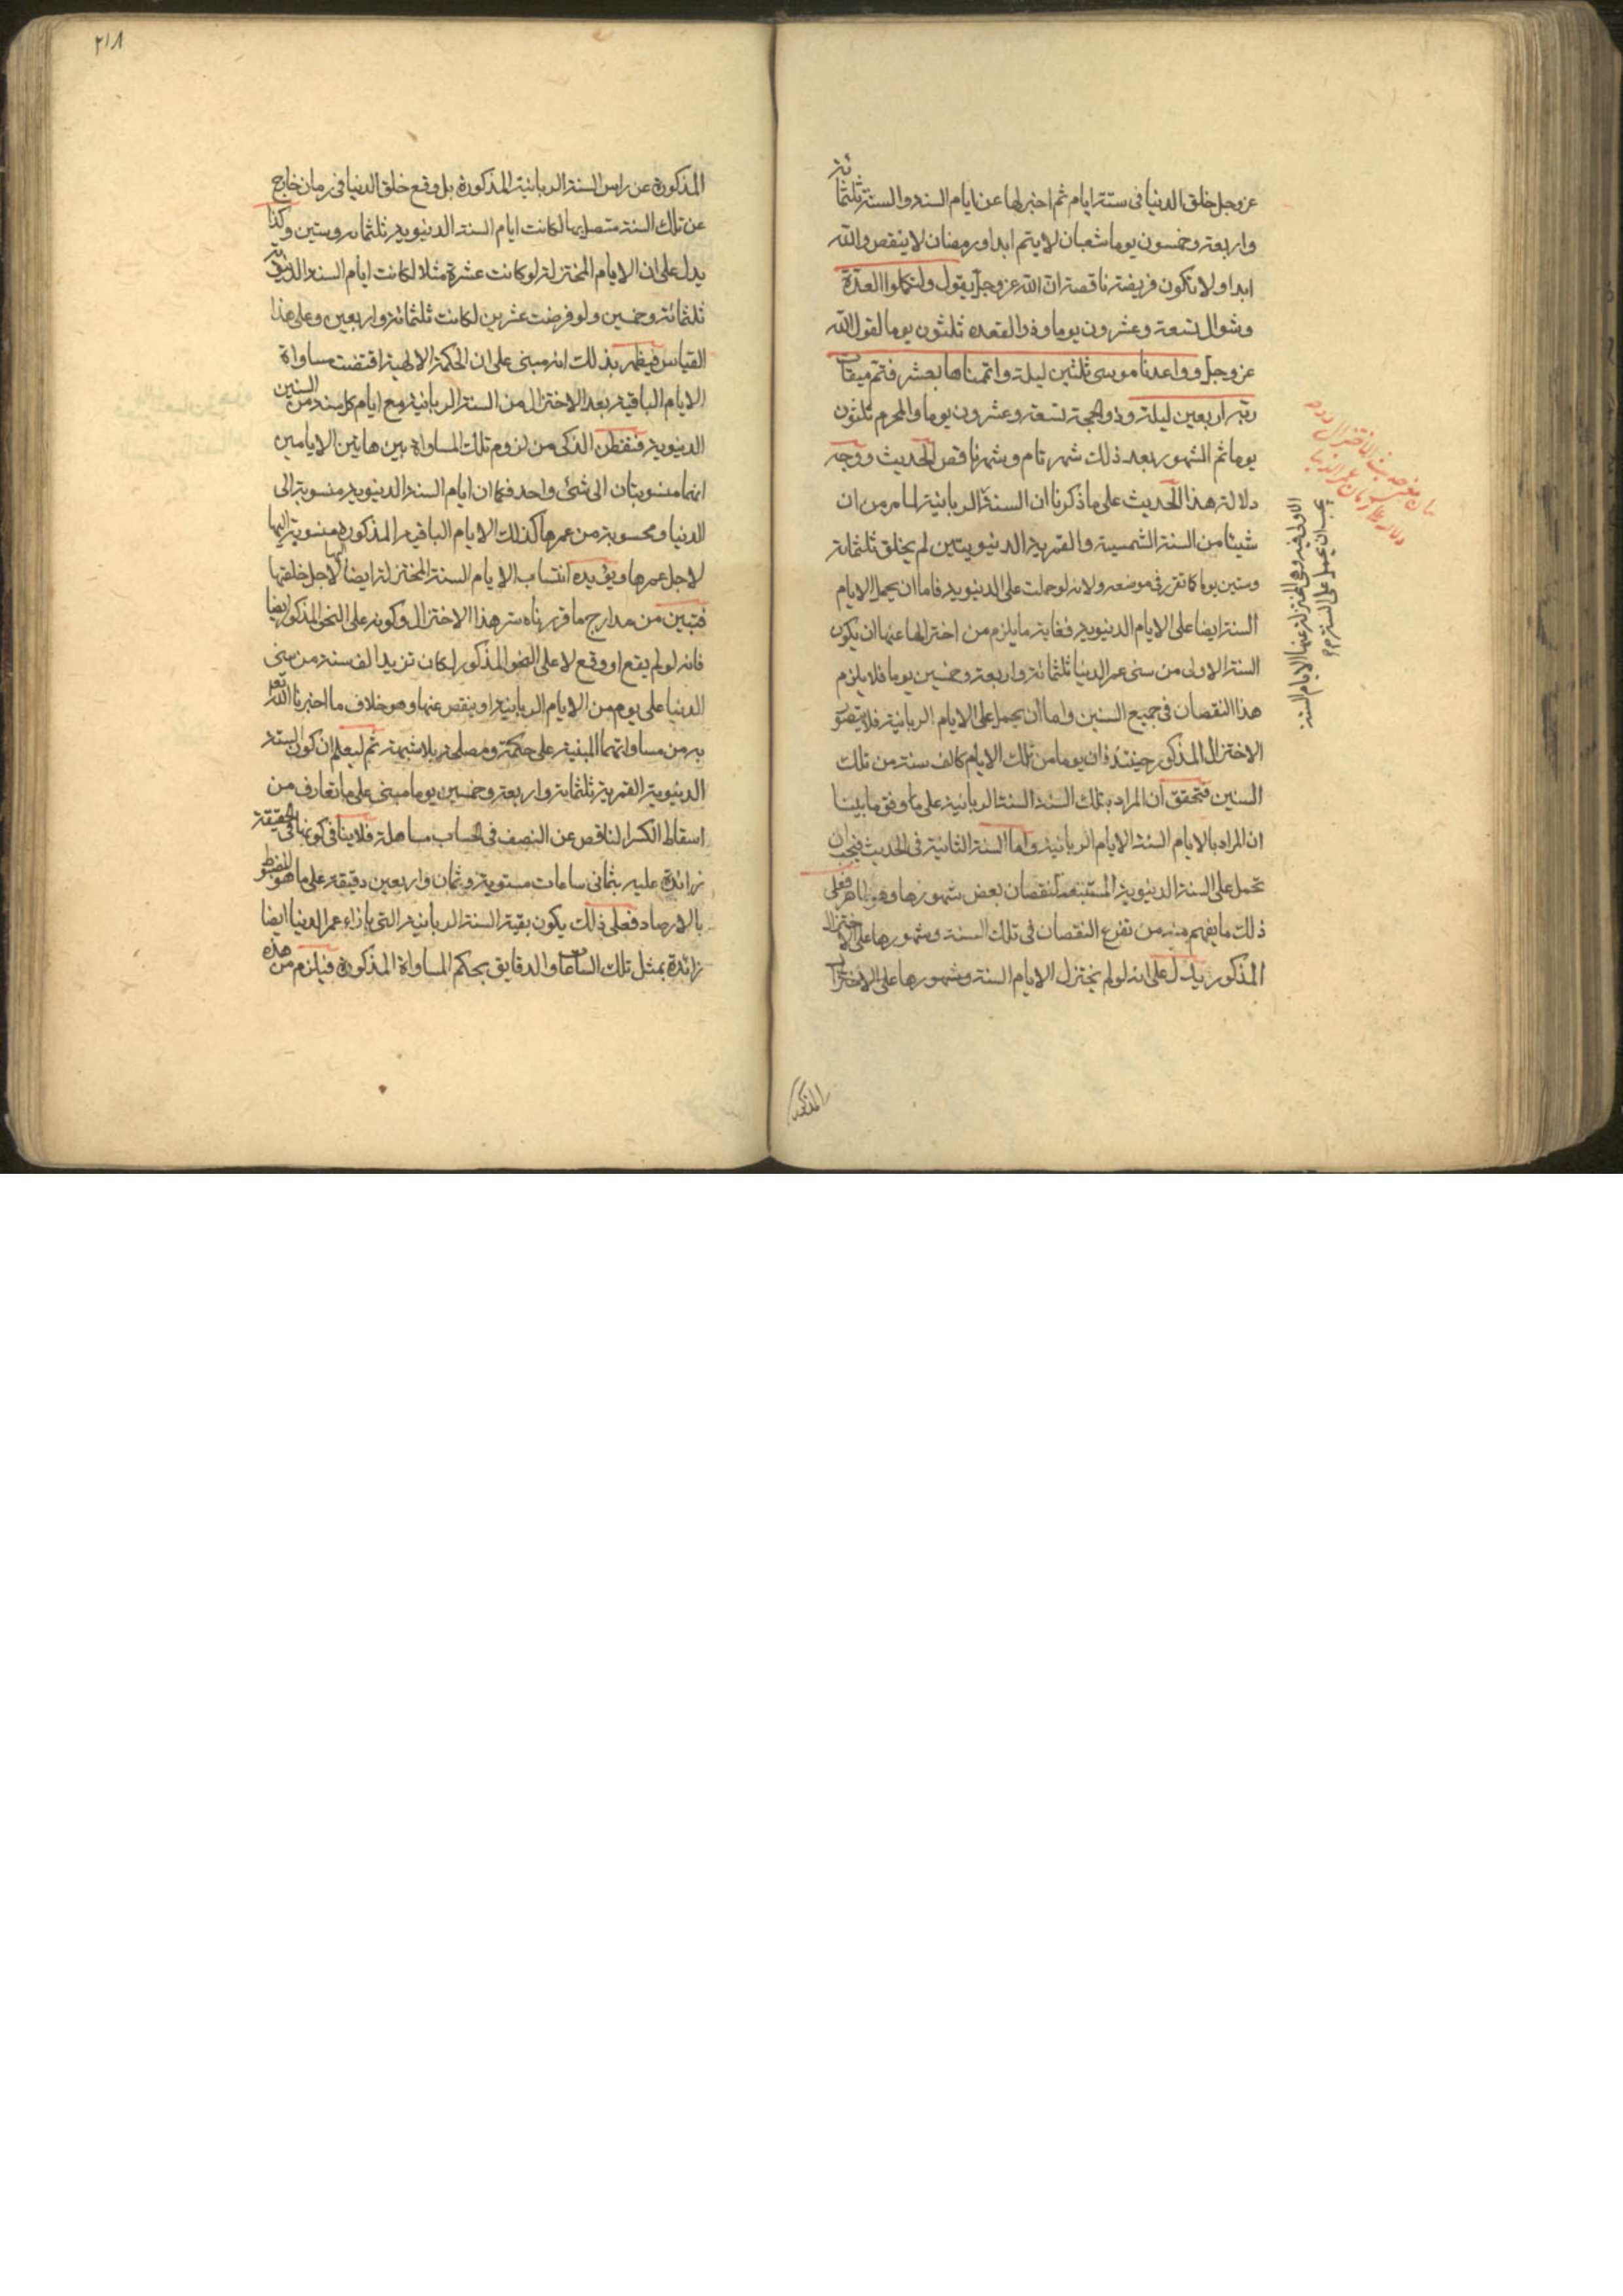 عز وجل خلق الدنيا فى ستة ايام ثم اختزلها عن ايام السنة والسنة ثلثمائة
واربعة وخمسون يوما شعبان لا يتم ابدا ورمضان لا ينقص والله
ابدا ولا تكون فريضة ناقصة ان الله عز وجل يقول ولتكملوا العدة
وشوال تسعة وعشرون يوما وذو القعده ثلثون يوما لقول الله
عز وجل وواعدنا موسى ثلثين ليلة واتممناها بعشر فتم ميقات
ربه اربعين ليلة وذو الحجة تسعة وعشرون يوما والمحرم ثلثون
يوما ثم الشهور بعد ذلك شهر تام وشهر ناقص الحديث ووجه
دلالة هذا الحديث على ما ذكرنا ان السنة الربانية لما مر من ان
شيئا من السنة الشمسية والقمرية الدنيويتين لم يخلق ثلثمائة
وستين يوما كما تقرر فى موضعه ولانه لو حملت على الدنيوية فاما ان يحمل الايام
الستة ايضا على الايام الدنيوية فغاية ما يلزم من اختزالها عنها ان يكون
السنة الاولى من سنى عمر الدنيا ثلثمائة واربعة وخمسين يوما فلا يلزم
هذا النقصان فى جميع السنين واما ان يحمل على الايام الربانية فلا يتصور
الاختزال المذكور حينئذ فان يوما من تلك الايام كالف سنة من تلك
السنين فتحقق ان المراد بتلك السنة السنة الربانية على ما وفق ما بينا
ان المراد بالايام الستة الايام الربانية واما السنة الثانية فى الحديث فيجب ان
تحمل على السنة الدنيوية لنقصان بعض شهورها وهو ظاهر فعلى
ذلك ما يفهم منه من تفرع النقصان فى تلك السنة وشهورها على الاختزال
المذكور يدل على انه لو لم يختزل الايام الستة وشهورها على الاختزال
المذكور
الاولى فيه وهى المختزلة عنها الايام الستة
يجب ان يحمل على السنة
٢١٨
المذكورة عن راس السنة الربانية المذكورة بل وقع خلق الدنيا فى زمان خارج
عن تلك السنة متصل بها لكانت ايام السنة الدنيوية ثلثمائة وستين وكذا
يدل على ان الايام المختزلة لو كانت عشرة مثلا لكانت ايام السنة الدنيوية
ثلثمائة وخمسين ولو فرضت عشرين لكانت ثلثمائة واربعين وعلى هذا
القياس فيظهر بذلك انه مبنى على ان الحكمة الالهية اقتضت مساواة
الايام الباقية بعد الاختزال من السنة الربانية مع ايام كل سنة من السنين
الدنيوية فتفطن الذكى من لزوم تلك المساواة بين هاتين الايامين
انهما منسوبتان الى شئ واحد فكما ان ايام السنة الدنيوية منسوبة الى
الدنيا ومحسوبة من عمرها كذلك الايام الباقية المذكورة منسوبة اليها
لاجل عمرها ويؤيده انتساب الايام الستة المختزلة ايضا اليها لاجل خلقتها
فتبين من مدارج ما قررناه سر هذا الاختزال وكونه على النحو المذكور ايضا
فانه لو لم يقع او وقع لا على النحو المذكور لكان تزيد الف سنة من سنى
الدنيا على يوم من الايام الربانية او ينقص عنها وهو خلاف ما اخبرنا الله تعالى
به من مساواتهما المبنية على حكمة ومصلحة بلا شبهة ثم ليعلم ان كون السنة
الدنيوية القمرية ثلثماية واربعة وخمسين يوما مبنى على ما تعارف من
اسقاط الكسر الناقص عن النصف فى الحساب مساهلة فلا ينافى كونها فى الحقيقة
زائدة عليه بثمانى ساعات مستوية وثمان واربعين دقيقة على ما هو المضبوط
بالارصاد فعلى ذلك يكون بقية السنة الربانية التى بازاء عمر الدنيا ايضا
زائدة بمثل تلك الساعات والدقايق بحكم المساواة المذكورة فيلزم من هذه